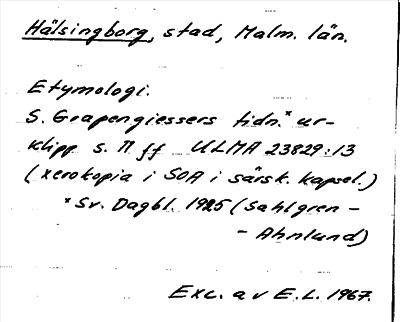 Hälsingborg, stad, Malm. län.
Etymologi.
S. Grapengiessers tidn.* ur-
klipp s. 11 ff ULMA 23829:13
(xerokopia i SOA i särsk. kapsel.)
* Sv. Dagbl. 1925 (Sahlgren -
- Ahnlund)
Exc. av E.L. 1967.